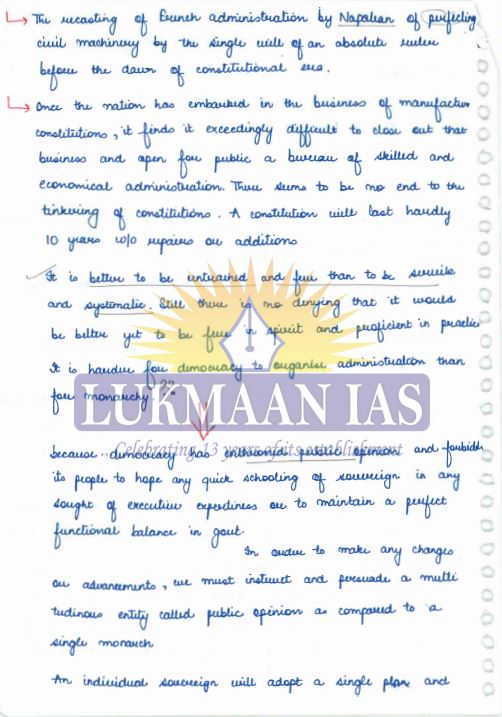 The recasting of French administration by Napolian of perfecting
civil machinery by the single will of an absolute ruler
before the dawn of constitutional era.
Once the nation has embarked in the business of manufactur
constitutions, it finds it exceedingly difficult to close out that
business and open for public a bureau of skilled and
economical administration. There seems to be no end to the
tinkering of constitutions. A constitution will last hardly
10 years w/o repairs or additions
It is better to be untrained and free than to be servile
and systematic. Still there is no denying that it would
be better yet to be free in spirit and proficient in practice
It is harder for democracy to organise administration than
for monarchy ??
LUKMAAN IAS
Celebrating 13 years of its establishment
because democracy has enthroned public opinion and forbids
its people to hope any quick schooling of sovereign in any
sought of executive expertiness or to maintain a perfect
functional balance in govt.
In order to make any changes
or advancements, we must instruct and persuade a multi
tudinous entity called public opinion as compared to a
single monarch
An individual sovereign will adopt a single plan and